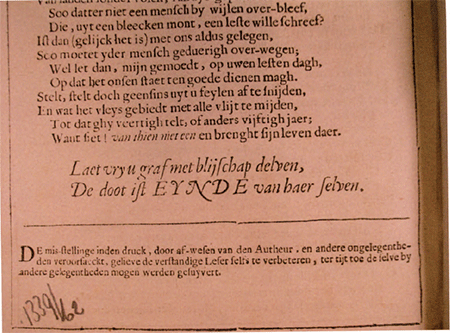 Soo datter niet een mensch by wijlen over-bleef,
Die, uyt een bleecken mont, een leste wille schreef?
Ist dan (gelijck het is) met ons aldus gelegen,
Soo moetet yder mensch geduerigh over-wegen;
Wel let dan, mijn gemoedt, op uwen lesten dagh,
Op dat het onsen staet ten goede dienen magh.
Stelt, stelt doch geensins uyt u feylen af te snijden,
En wat het vleys gebiedt met alle vlijt te mijden,
Tot dat ghy veertigh telt, of anders vijftigh jaer;
Want siet! van thien met een en brenght sijn leven daer.
Laet vry u graf met blijschap delven,
De doot ist EYNDE van haer selven.
DE mis-stellinge inden druck, door af-wesen van den Autheur, en andere ongelegenthe-
den veroorsaeckt, gelieve de verstandige Leser self te verbeteren, ter tijt toe de selve by
andere gelegentheden mogen werden gesuyvert.
1339/62